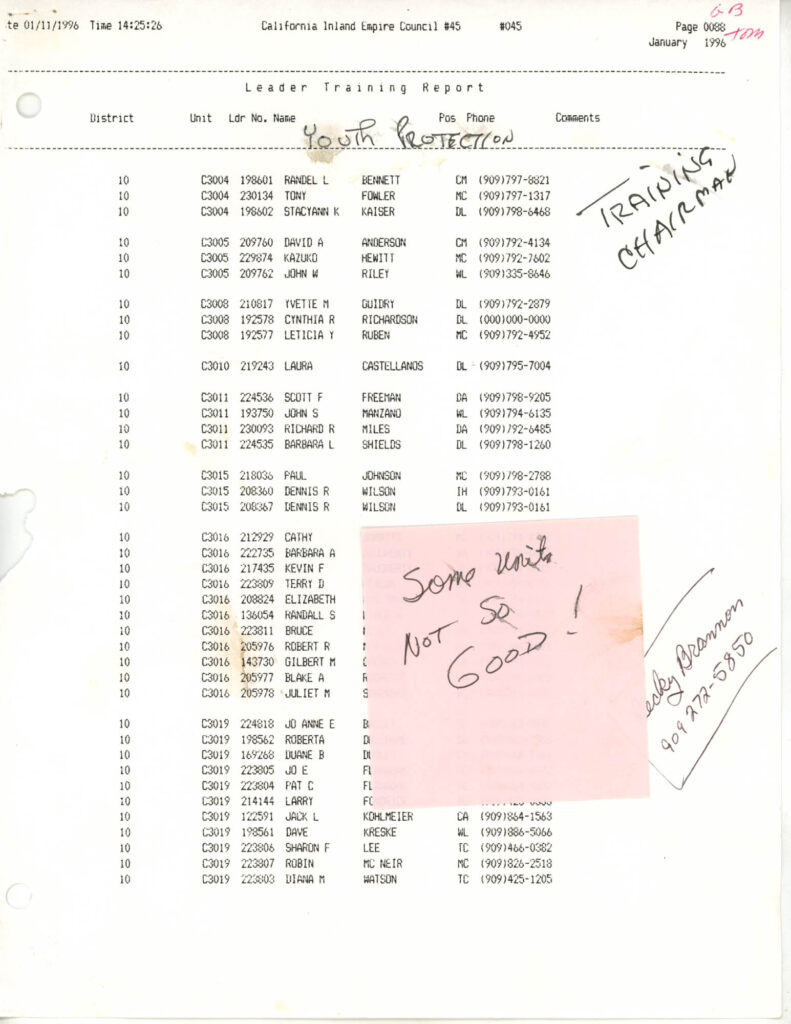 te 01/11/1996 Time 14:25:26 California Inland Empire Council #45 #045 Page 0088
January 1996
GB
Tom
Leader Training Report
District Unit Ldr No. Name Pos Phone Comments
Youth Protection
Training
Chairman
10 C3004 198601 RANDEL L BENNETT CM (909)797-8821
10 C3004 230134 TONY FOWLER MC (909)797-1317
10 C3004 198602 STACYANN K KAISER DL (909)798-6468
10 C3005 209760 DAVID A ANDERSON CM (909)792-4134
10 C3005 229874 KAZUKO HEWITT MC (909)792-7602
10 C3005 209762 JOHN W RILEY WL (909)335-8646
10 C3008 210817 YVETTE M GUIDRY DL (909)792-2879
10 C3008 192578 CYNTHIA R RICHARDSON DL (000)000-0000
10 C3008 192577 LETICIA Y RUBEN MC (909)792-4952
10 C3010 219243 LAURA CASTELLANOS DL (909)795-7004
10 C3011 224536 SCOTT F FREEMAN DA (909)798-9205
10 C3011 193750 JOHN S MANZANO WL (909)794-6135
10 C3011 230093 RICHARD R MILES DA (909)792-6485
10 C3011 224535 BARBARA L SHIELDS DL (909)798-1260
10 C3015 218036 PAUL JOHNSON MC (909)798-2788
10 C3015 208360 DENNIS R WILSON IH (909)793-0161
10 C3015 208367 DENNIS R WILSON DL (909)793-0161
10 C3016 212929 CATHY
10 C3016 222735 BARBARA A
10 C3016 217435 KEVIN F
10 C3016 223809 TERRY D
10 C3016 208824 ELIZABETH
10 C3016 136054 RANDALL S
10 C3016 223811 BRUCE
10 C3016 205976 ROBERT R
10 C3016 143730 GILBERT M
10 C3016 205977 BLAKE A
10 C3016 205978 JULIET M
Some Units
Not So
Good!
ecky Brannon
909 272-5850
10 C3019 224818 JO ANNE E
10 C3019 198562 ROBERTA
10 C3019 169268 DUANE B
10 C3019 223805 JO E FL
10 C3019 223804 PAT C FL
10 C3019 214144 LARRY
10 C3019 122591 JACK L KOHLMEIER CA (909)864-1563
10 C3019 198561 DAVE KRESKE WL (909)886-5066
10 C3019 223806 SHARON F LEE TC (909)466-0382
10 C3019 223807 ROBIN MC NEIR MC (909)826-2518
10 C3019 223803 DIANA M WATSON TC (909)425-1205